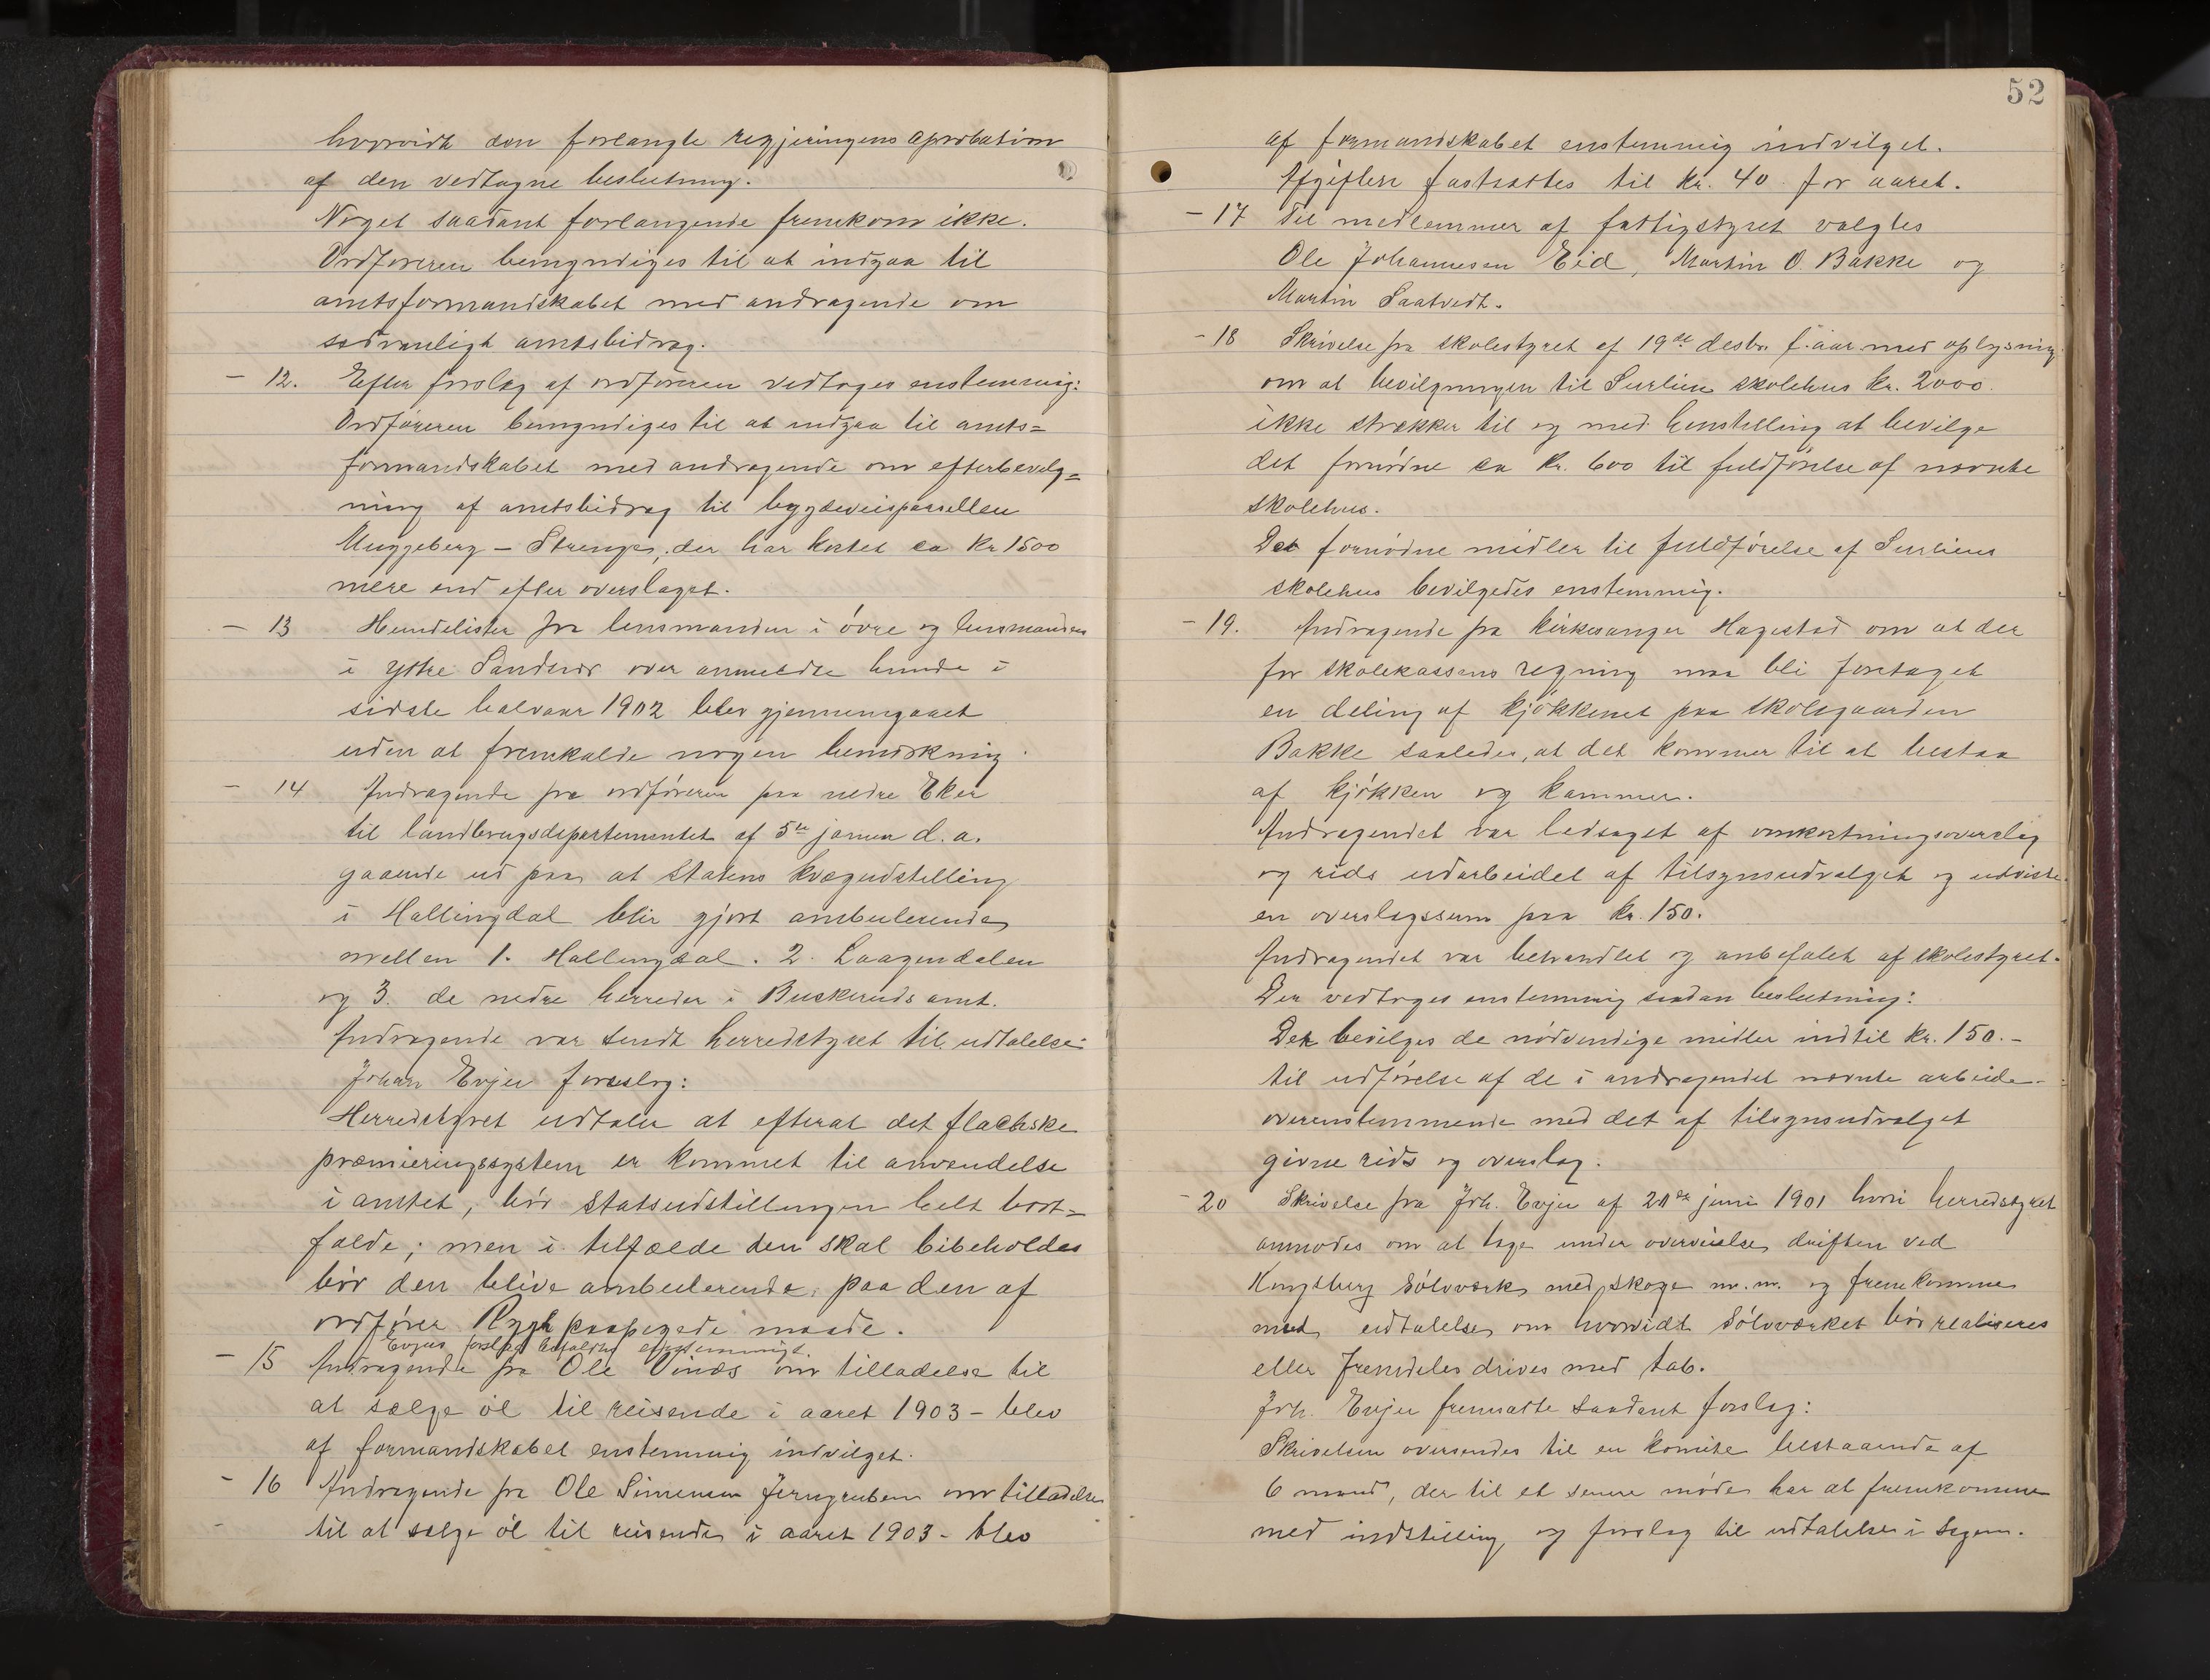 hvorvidt den forlangte regjeringens aprobation
af den vedtagne beslutning.
Noget saadant forlangende fremkom ikke.
Ordføreren bemyndiges til at indgaa til
amtsformandskabet med andragende om
sedvanligt amtsbidrag.
- 12. Efter forslag af ordføreren vedtoges enstemmig:
Ordføreren bemyndiges til at indgaa til amts=
formandskabet med andragende om efterbevilg=
ning af amtsbidrag til bygdeveisparsellen
Muggeberg - Strenge, der har kostet ca kr 1500
mere end efter overslaget.
- 13 Hundelister fra lensmanden i øvre og lensmanden
i ytre Sandsvær over anmeldte hunde i
sidste halvaar 1902 blev gjennemgaaet
uden at fremkalde nogen bemærkning.
- 14 Andragende fra ordføreren paa nedre Eker
til landbrugsdepartementet af 5te januar d.a.
gaaende ud paa at Statens kvægudstilling
i Hallingdal blir gjort ambulerende
mellem 1. Hallingdal. 2. Laagendalen
og 3. de nedre herreder i Buskeruds amt.
Andragende var sendt herredstyret til udtalelse.
Johan Evju foreslog:
Herredstyret udtaler at efterat det flachske
præmieringssystem er kommet til anvendelse
i amtet, bør statsudstillingen helt bort=
falde; men i tilfælde den skal bibeholdes
bør den blive ambulerende paa den af
ordfører Rygh paapegede maade.
Evjus forslag bifaldtes enstemmigt.
- 15 Andragende fra Ole Vinæs om tilladelse til
at sælge øl til reisende i aaret 1903 - blev
af formandskabet enstemmig indvilget.
- 16 Andragende fra Ole Simensen Jerngruben om tilladelse
til at sælge øl til reisende i aaret 1903 - blev
52
af formandskabet enstemmig indvilget.
Afgiften fastsattes til kr. 40 for aaret.
- 17 Til medlemmer af fattigstyret valgtes
Ole Johannesen Eid, Martin O. Bakke og
Martin Saatvedt.
- 18 Skrivelse fra skolestyret af 19de desbr. f. aar med oplysning
om at bevilgningen til Surlien skolehus kr. 2000.
ikke strækker til og med henstilling at bevilge
det fornødne ca kr. 600 til fuldførelse af nævnte
skolehus.
Det fornødne midler til fuldførelse af Surliens
skolehus bevilgedes enstemmig.
- 19. Andragende fra kirkesanger Hagestad om at der
for skolekassens regning maa bli foretaget
en deling af kjøkkenet paa skolegaarden
Bakke saaledes, at det kommer til at bestaa
af kjøkken og kammer.
Andragendet var ledsaget af omkostningsoverslag
og rids udarbeidet af tilsynsudvalget og udviste
en overslagssum paa kr. 150.
Andragendet var behandlet og anbefalet af skolestyret.
Der vedtoges enstemmig saadan beslutning:
Det bevilges de nødvendige midler indtil kr. 150.-
til udførelse af de i andragendet nævnte arbeide
overenstemmende med det af tilsynsudvalget
givne rids og overslag.
- 20 Skrivelse fra Joh. Evju af juni 1901 hvori herredstyret
anmodes om at tage under overveielse driften ved
Kongsberg Sølvværk med skoge m.m. og fremkomme
med udtalelse om hvorvidt Sølvværket bør realiseres
eller fremdeles drives med tab.
Joh. Evju fremsatte saadant forslag:
Skrivelsen oversendes til en komite bestaaende af
6 mænd, der til et senere møde har at fremkomme
med indstilling og forslag til udtalelse i sagen.